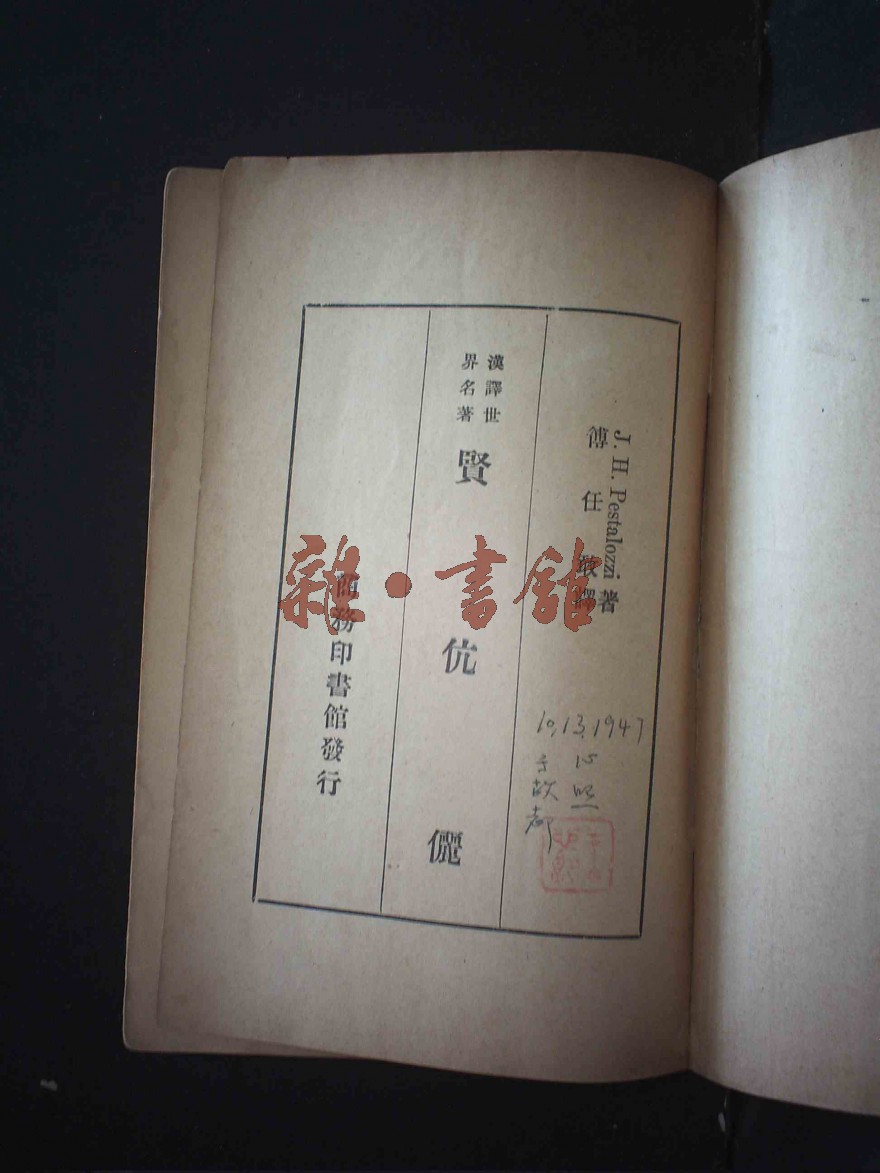 J. H. Pestalozzi 著
傅任敢譯
漢譯世
界名著
賢伉儷
商務印書館發行
10,13,1947
心照
于故都
雜·書館